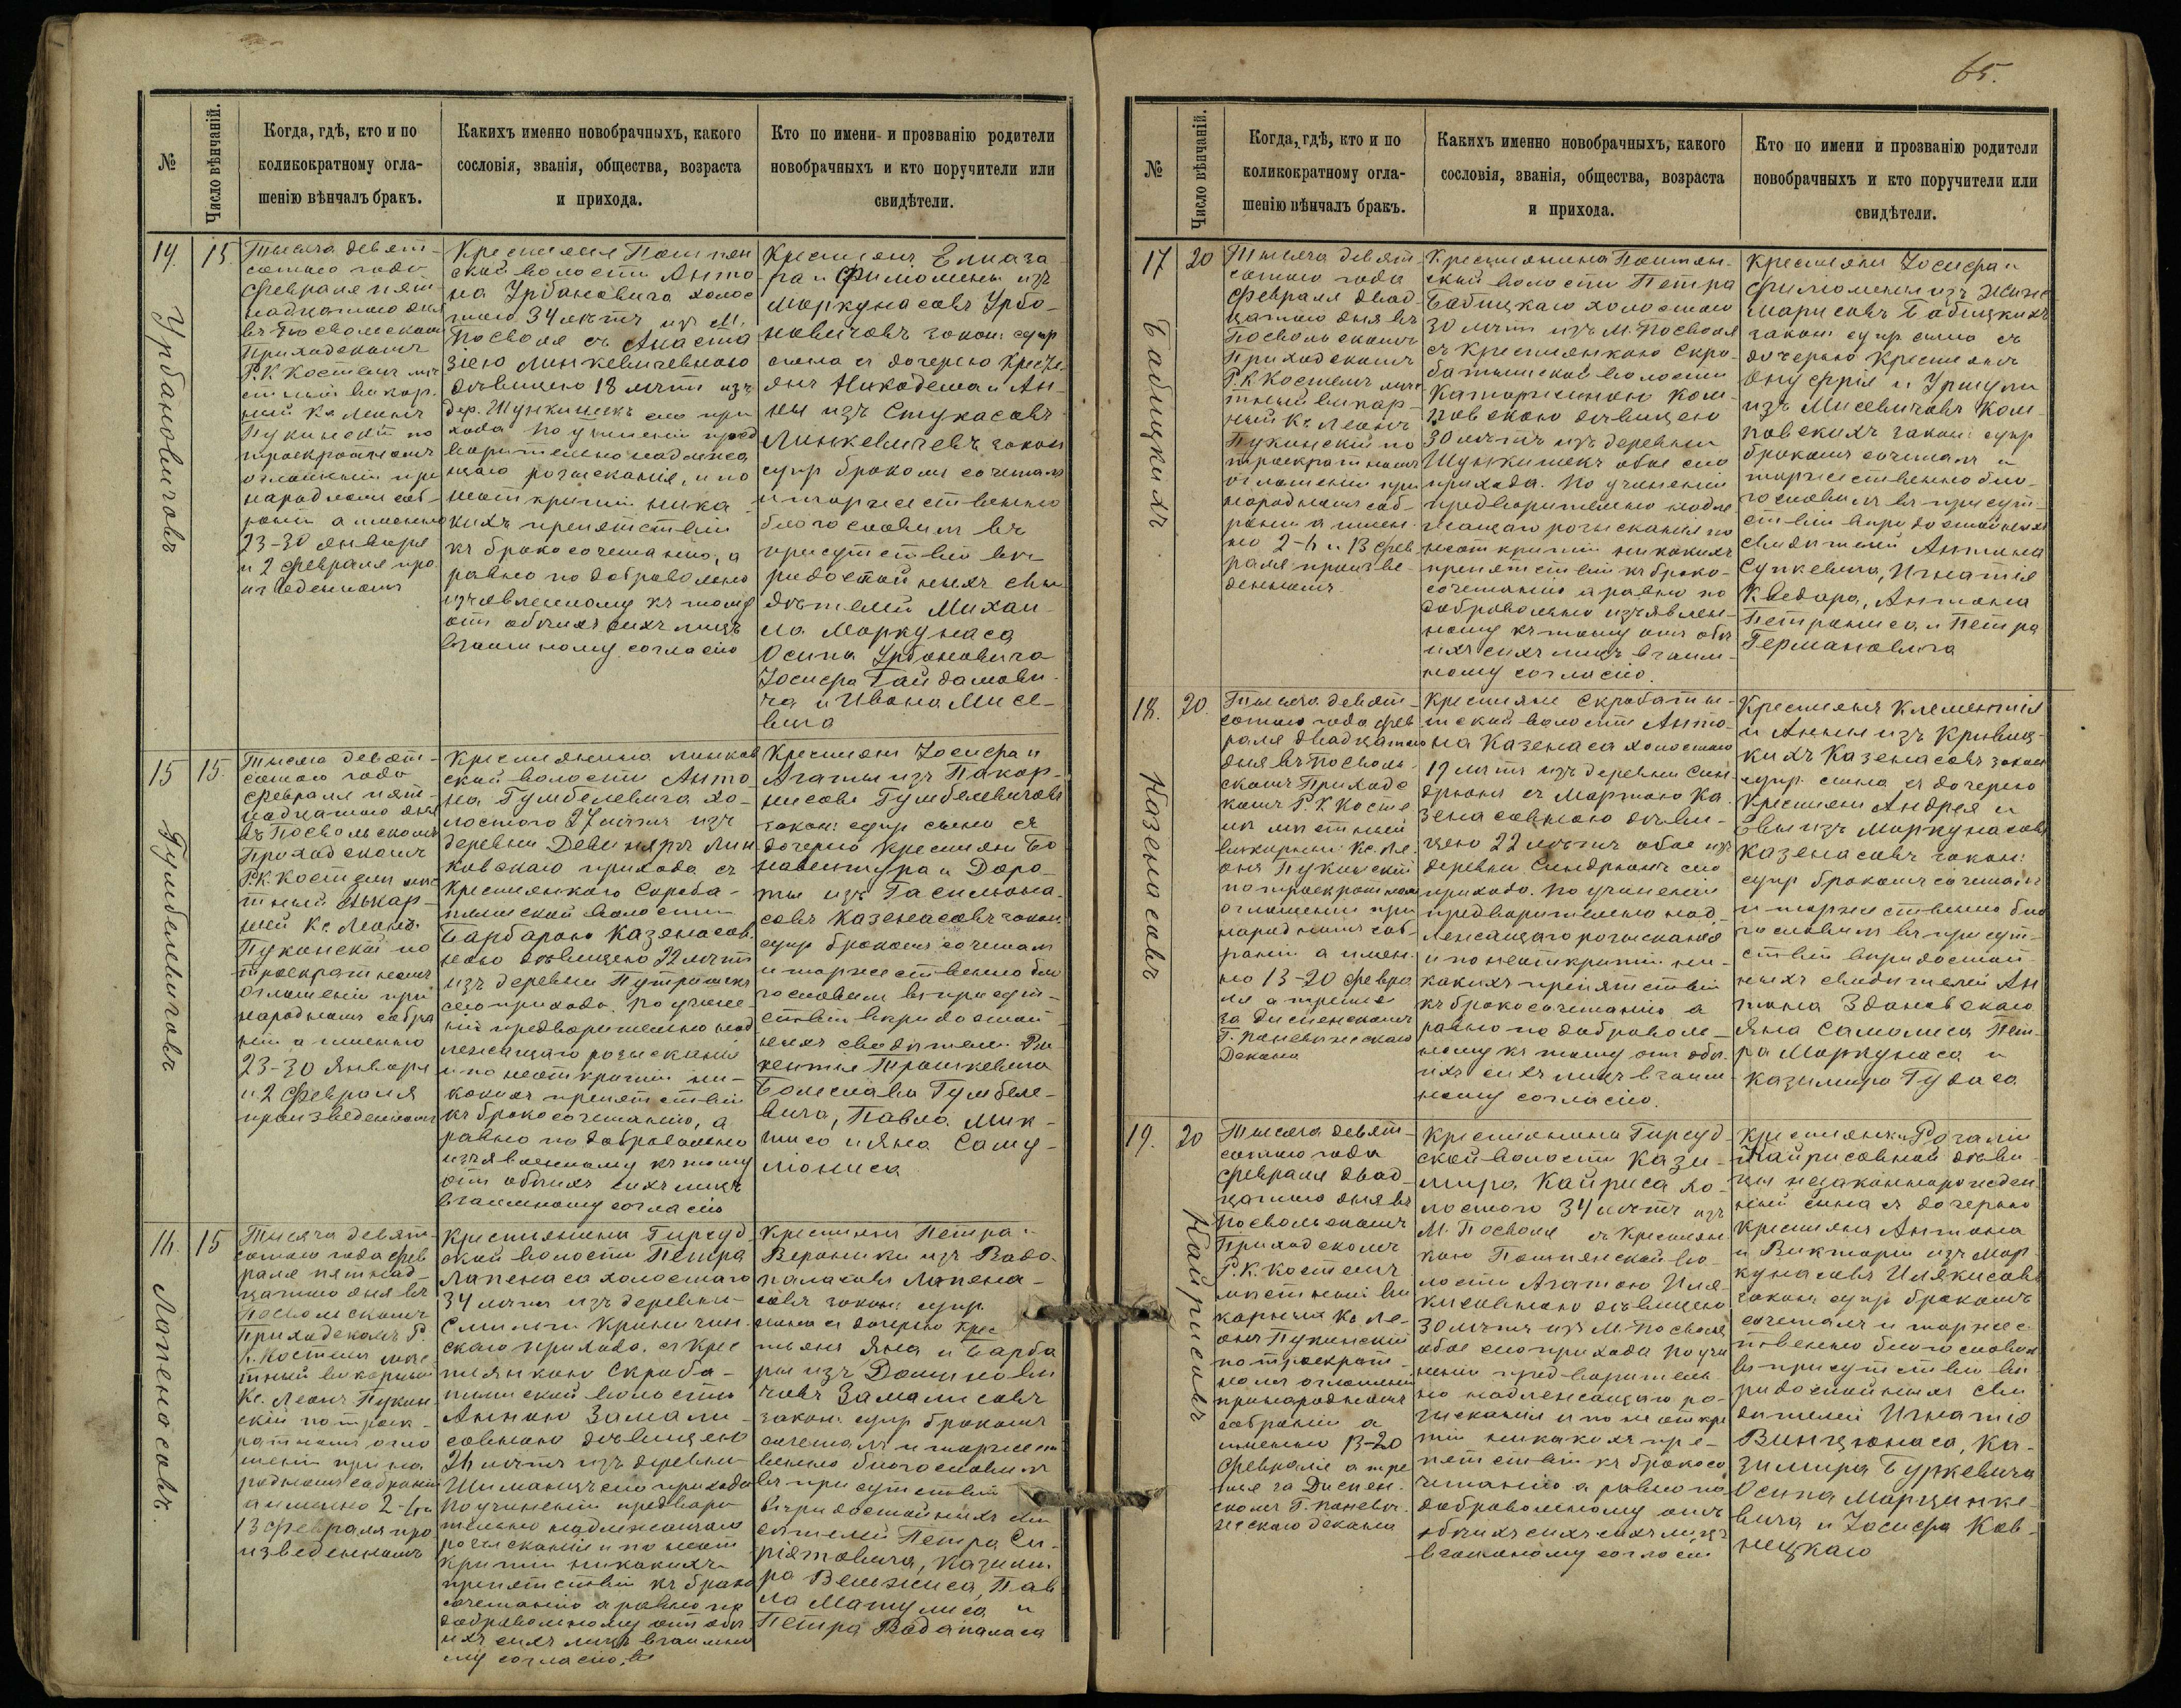 65.
№
Число вѣнчаній.
Когда, гдѣ, кто и по
коликократному огла-
шенію вѣнчалъ бракъ.
Какихъ именно новобрачныхъ, какого
сословія, званія, общества, возраста
и прихода.
Кто по имени и прозванію родители
новобрачныхъ и кто поручители или
свидѣтели.
14.
Урбановичовъ
15.
Тысяча девят-
сотаго года
февраля пят-
надцатаго дня
въ Посвольскомъ
Приходскомъ
Р. К. Костелѣ мѣ-
стный викар-
ный Кс. Леонъ
Пукинскій по
троекратномъ
оглашеніи при
народномъ соб-
раніи а именно
23-30 января
и 2 февраля про
изведенномъ
Крестьяне Помпян
ской волости Анто
на Урбановича холос
таго 34 лѣтъ изъ М.
Посволя съ Анаста
зіею Линкевичевною
дѣвицею 18 лѣтъ изъ
дер. Шункишекъ сего при
хода по учиненіи пред
варительно надлежа
щаго розысканія, и по
неоткрытіи ника-
кихъ препятствій
къ бракосочетанію, а
равно по добровольно
изъявленному къ тому
отъ обѣихъ сихъ лицъ
взаимному согласію
Крестьянъ Елиаза
ра и Филомены изъ
Моркунасовъ Урба-
новичовъ закон: супр
сына съ дочерью Кресть
янъ Никодема и Ан-
ны изъ Стукасовъ
Линкевичевъ закон
супр бракомъ сочеталъ
и торжественно
благословилъ въ
присутствіи вѣ-
ридостойныхъ сви
дѣтелей Михаи-
ла Моркунаса
Осипа Урбановича
Іосифа Гайдамови-
ча и Ивана Мисе-
вича
15
Гумбелевичовъ
15.
Тысяча девят-
сотаго года
февраля пят-
надцатаго дня
въ Посвольскомъ
Приходскомъ
Р. К. Костелѣ мѣс
тный викар-
ный Кс. Леонъ
Пукинскій по
троекратномъ
оглашеніи при
народномъ собра
ніи а именно
23-30 Января
и 2 Февраля
произведенномъ
Крестьянина Линков
ской волости Анто
на Гумбелевича хо-
лостого 27 лѣтъ изъ
деревни Девиняръ Лин
ковскаго прихода съ
крестьянкою Скроба-
тишской волости
Барбарою Казенасов
ною дѣвицею 22 лѣтъ
изъ деревни Путришекъ
сего прихода. По учине-
ніи предварительно над
лежащаго розысканія
и по неоткрытіи ни-
какихъ препятствій
къ бракосочетанію, а
равно по добровольно
изъявленному къ тому
отъ обѣихъ сихъ лицъ
взаимному согласію
Крестьянъ Іосифа и
Агаты изъ Покор-
нисовъ Гумбелевичовъ
закон: супр сына съ
дочерью Крестьянъ Бо
навентура и Доро-
ты изъ Гасилюна-
совъ Казенасовъ закон.
супр бракомъ сочеталъ
и торжественно бла
гословилъ въ присут-
ствіи вѣридостой
ныхъ свидѣтелей Ви
кентія Трошкевича
Болеслава Гумбеле-
вича, Павла Мик-
шиса и Яна Саму-
ліониса
16.
Лапенасовъ.
15
Тысяча девят-
сотаго года фев
раля пятнад-
цатаго дня въ
Посвольскомъ
Приходскомъ Р.
К. Костелѣ мѣс
тный викарный
Кс. Леонъ Пукин
скій по троек-
ратномъ огла
шеніи при на
родномъ собраніи
а именно 2-6 и
13 Февраля про
изведенномъ
Крестьянина Гирсуд
ской волости Петра
Лапенаса холостаго
34 лѣтъ изъ деревни
Смильги Криничин
скаго прихода, съ Крес
тьянкою Скроба-
тишской волости
Анною Замали-
совною дѣвицею
26 лѣтъ изъ деревни
Шиманцъ сего прихода
По учиненіи предвари
тельно надлежащаго
розысканія и по неот
крытіи никакихъ
препятствій къ брако
сочетанію а равно по
добровольному отъ обѣ
ихъ сихъ лицъ взаимно
му согласію.
Крестьянъ Петра и
Вероники изъ Водо-
паласовъ Лапена-
совъ закон: супр
сына съ дочерью Крес
тьянъ Яна и Барба
ры изъ Домнови
човъ Замалисовъ
закон: супр бракомъ
сочеталъ и торжест
венно благословилъ
въ присутствіи
вѣридостойныхъ сви
дѣтелей Петра Си-
ріятовича, Казими
ра Вельжиса, Пав
ла Матулиса и
Петра Водопаласа
№
Число вѣнчаній.
Когда, гдѣ, кто и по
коликократному огла-
шенію вѣнчалъ бракъ.
Какихъ именно новобрачныхъ, какого
сословія, званія, общества, возраста
и прихода.
Кто по имени и прозванію родители
новобрачныхъ и кто поручители или
свидѣтели.
17
Бабицкихъ
20
Тысяча девят
сотаго года
Февраля двад-
цатаго дня въ
Посвольскомъ
Приходскомъ
Р. К. Костелѣ мѣс
тный викар-
ный Кс. Леонъ
Пукинскій по
троекратномъ
оглашеніи при
народномъ соб-
раніи а имен-
но 2-6 и 13 фев
раля произве-
денномъ.
Крестьянина Помпян-
ской волости Петра
Бабицкаго холостаго
30 лѣтъ изъ М. Посволя
съ Крестьянкою Скро-
батишской волости
Катаржиною Ком-
повскою дѣвицею
30 лѣтъ изъ деревни
Шункишекъ обое сего
прихода. По учиненіи
предварительно надле
жащаго розысканія по
неоткрытіи никакихъ
препятствій къ брако-
сочетанію а равно по
добровольно изъявлен-
ному къ тому отъ обѣ
ихъ сихъ лицъ взаим-
ному согласію.
Крестьянъ Іосифа и
Филомены изъ Жине
марисовъ Бабицкихъ
закон: супр сына съ
дочерью Крестьянъ
Онуфрія и Уршули
изъ Мисевичовъ Ком-
повскихъ закон: супр
бракомъ сочеталъ и
торжественно бла-
гословилъ въ присут-
ствіи вѣридостойныхъ
свидѣтелей Антона
Супкевича, Игнатія
Кведара, Антона
Петрониса и Петра
Германовича
18.
Казенасовъ
20.
Тысяча девят-
сотаго года фев
раля двадцатаго
дня въ Посволь-
скомъ Приходс
комъ Р. К. Косте
лѣ мѣстный
викарный Кс. Ле-
онъ Пукинскій
по троекратномъ
оглашеніи при
народномъ соб-
раніи а имен-
но 13-20 февра
ля а третье
за Диспенскомъ
Г. Поневѣжскаго
Декана
Крестьяне Скробати-
шской волости Анто-
на Казенаса холостаго
19 лѣтъ изъ деревни Син-
дріонъ съ Мартою Ка-
зенасовною дѣви-
цею 22 лѣтъ обое изъ
деревни Синдріонъ сего
прихода. По учиненіи
предварительно над-
лежащаго розысканія
и по неоткрытіи ни-
какихъ препятствій
къ бракосочетанію а
равно по доброволь-
ному къ тому отъ обѣ-
ихъ сихъ лицъ взаим
ному согласію.
Крестьянъ Клементія
и Анны изъ Кривиц-
кихъ Казенасовъ закон
супр. сына съ дочерью
Крестьянъ Андрея и
Евы изъ Моркунасовъ
Казенасовъ закон:
супр бракомъ сочеталъ
и торжественно бла
гословилъ въ присут-
ствіи вѣридостой-
ныхъ свидѣтелей Ан
тона Здановскаго
Яна Самолиса Пет-
ра Моркунаса и
Казимира Гудаса
19.
Кайрисовъ
20
Тысяча девят-
сотаго года
Февраля двад-
цатаго дня въ
Посвольскомъ
Приходскомъ
Р. К. Костелѣ
мѣстный ви
карный Кс. Ле-
онъ Пукинскій
по троекрат-
номъ оглашеніи
при народномъ
собраніи а
именно 13-20
Февраля а тре
тье за Диспен-
скомъ Г. Поневѣ-
жскаго декана
Крестьянина Гирсуд
ской волости Кази-
мира Кайриса хо-
лостого 34 лѣтъ изъ
М. Посволя съ Крестьян
кою Помпянской во-
лости Агатою Иля-
кисовною дѣвицею
30 лѣтъ изъ М. Посволя
обое сего прихода По учи
неніи предваритель-
но надлежащаго ро-
зысканія и по неоткры
тіи никакихъ пре-
пятствій къ бракосо
четанію а равно по
добровольному отъ
обѣихъ сихъ сихъ лицъ
взаимному согласію
Крестьянки Розаліи
Кайрисовной дѣви-
цы незаконнорожден
ный сына съ дочерью
Крестьянъ Антона
и Викторіи изъ Мор-
кунасовъ Илякисовъ
закон: супр бракомъ
сочеталъ и торжес
твенно благословилъ
въ присутствіи вѣ
ридостойныхъ сви
дѣтелей Игнатія
Винцюнаса, Ка-
зимира Буркевича
Осипа Марцинке-
вича и Іосифа Ков-
нецкаго